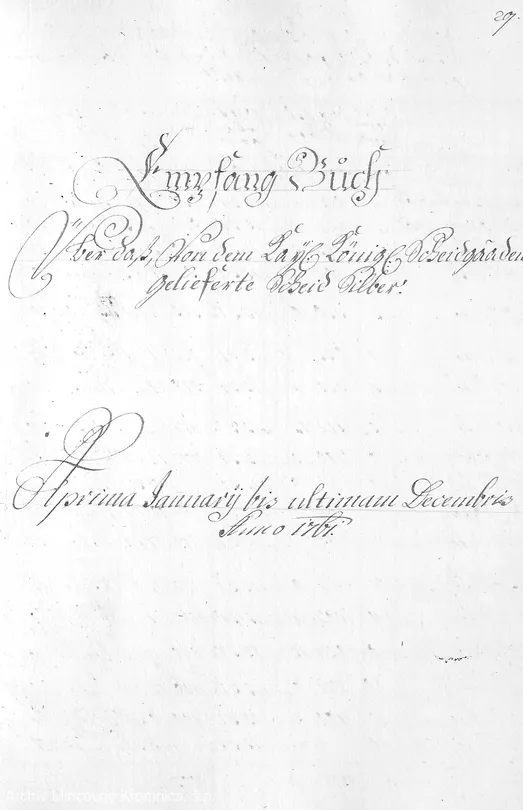 29.
Empfang Buch
Über daß, Von dem Kayl. Königl. Scheidgaaden
gelieferte Scheid Silber.
A prima Januarÿ bis ultimam Decembris
Anno 1761.
Archív Mincovne Kremnica, š.p.